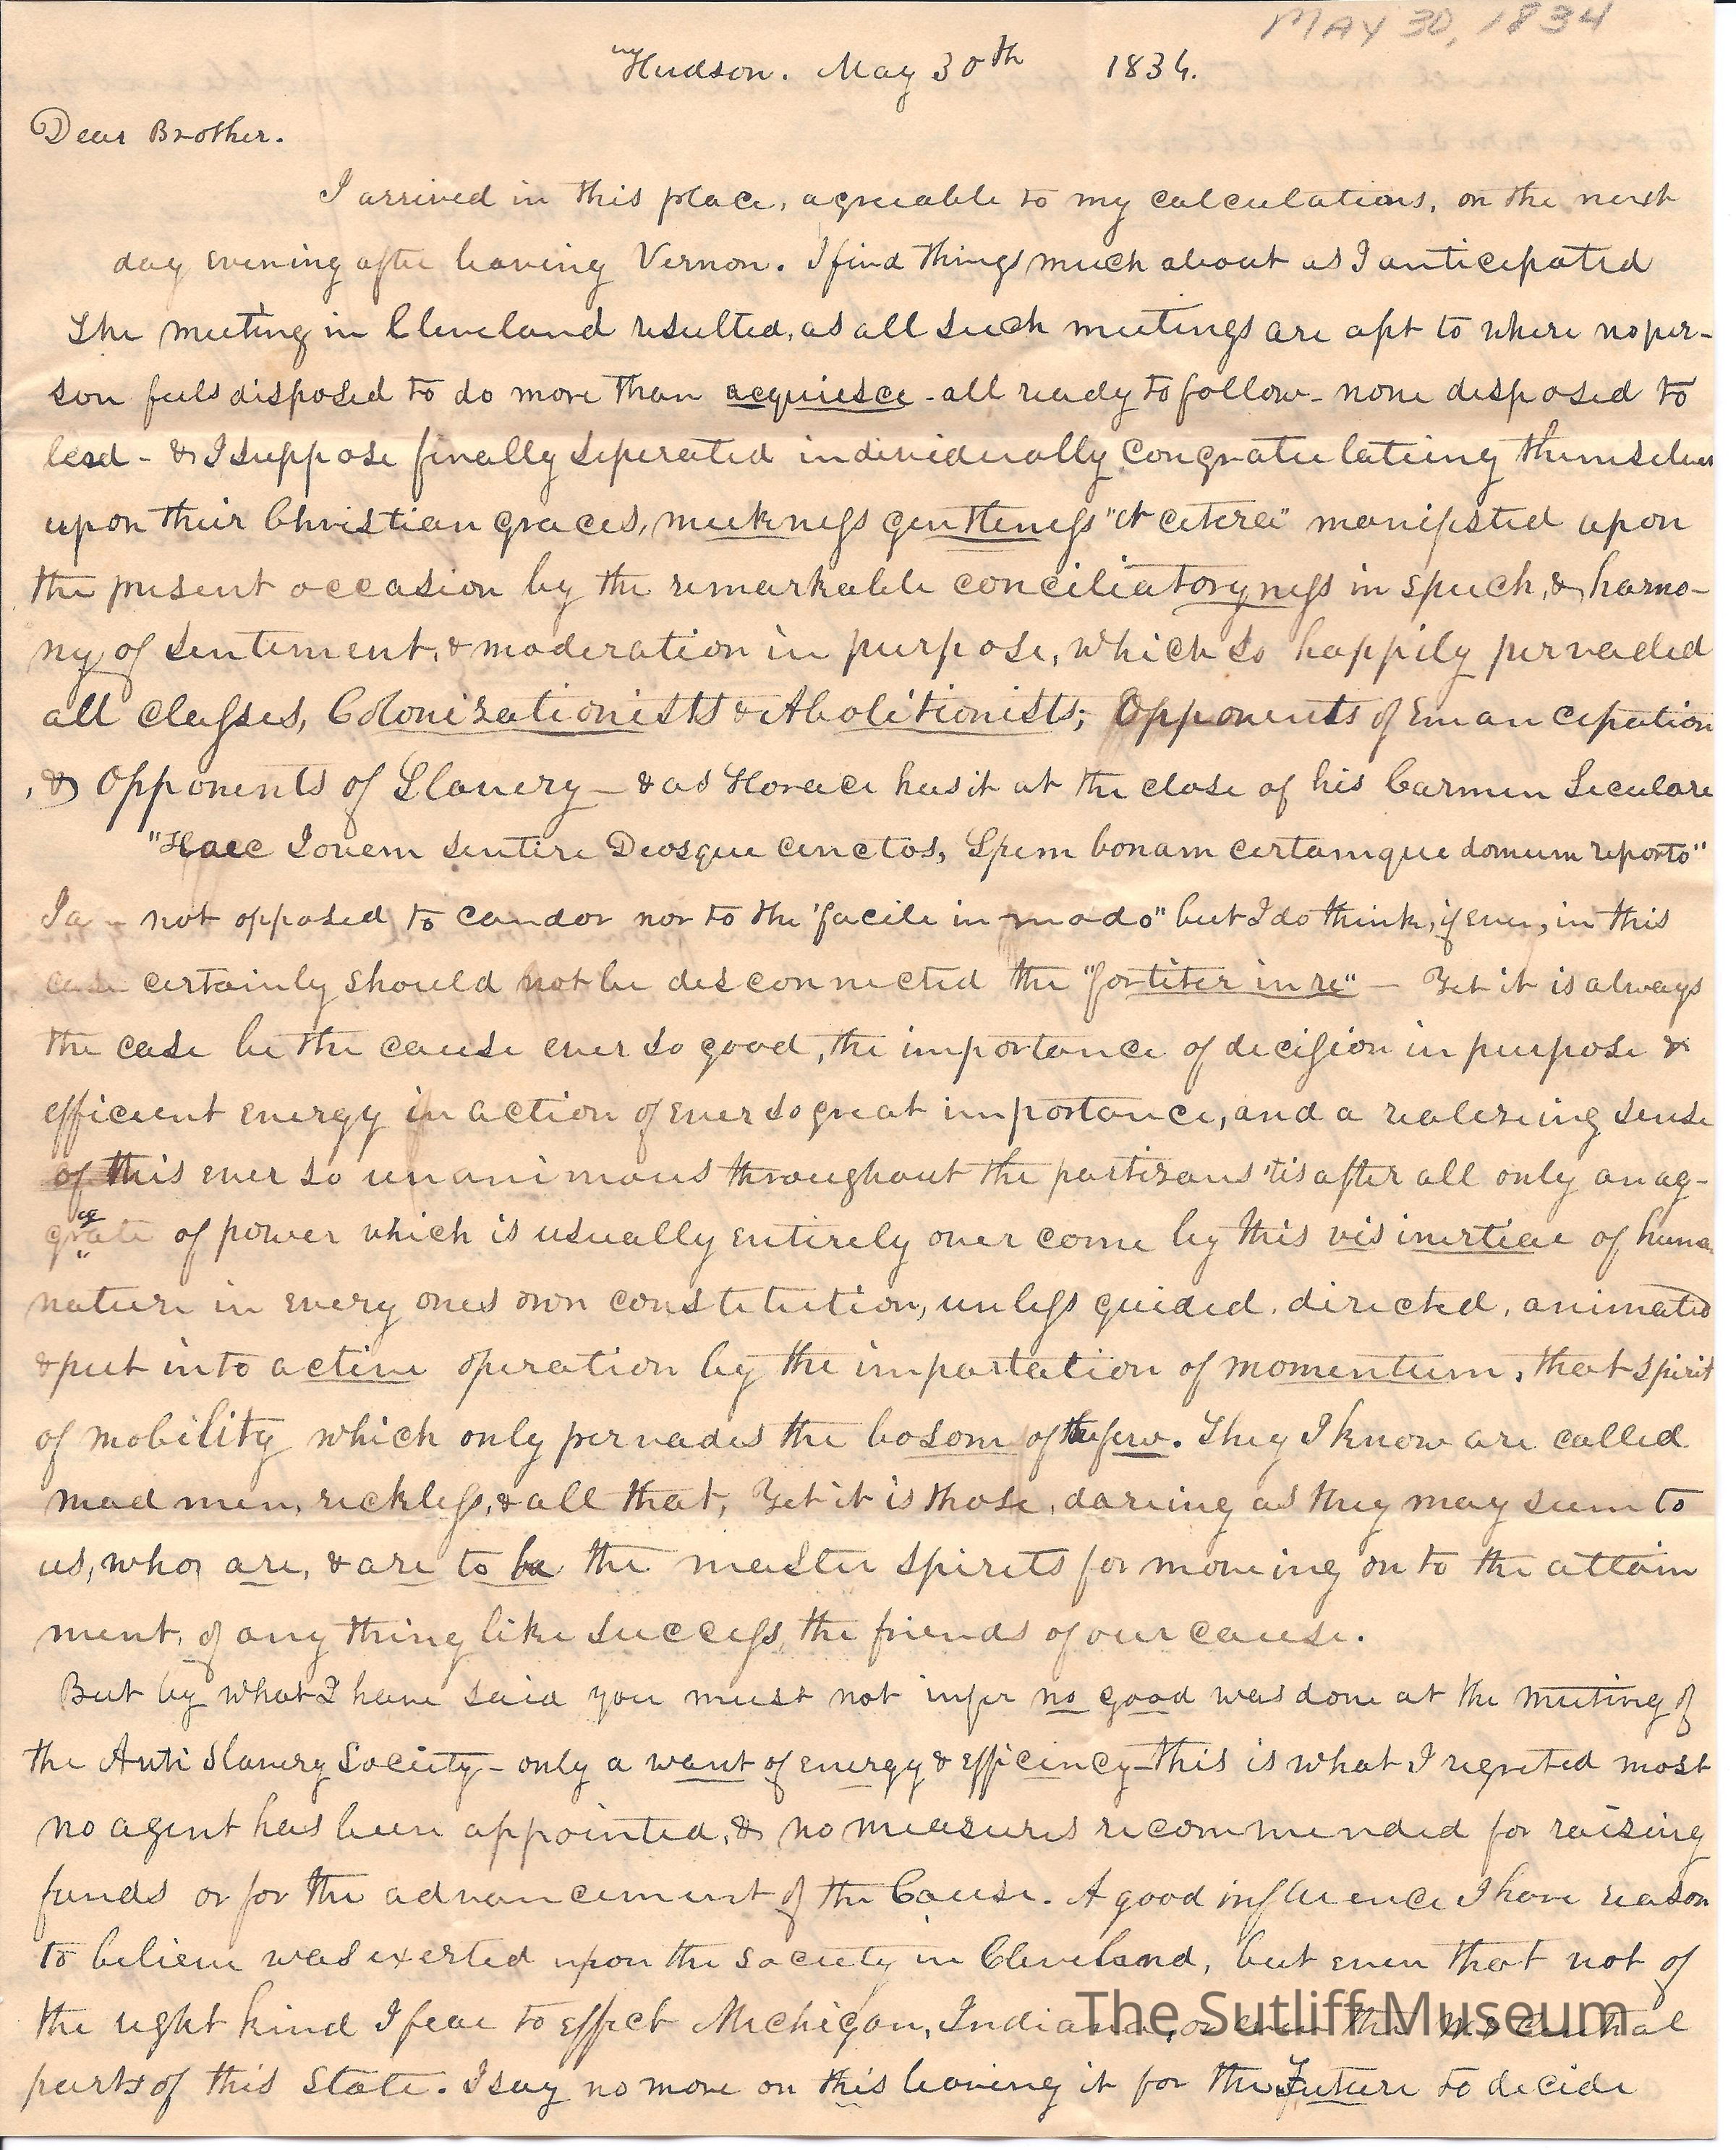 MAY 30, 1834
Hudson. May 30th 1834.
Dear Brother.
I arrived in this place, agreeable to my calculations, on the next
day evening after leaving Vernon. I find things much about as I anticipated
The meeting in Cleveland resulted, as all such meetings are apt to where no per-
son feels disposed to do more than acquiesce - all ready to follow - none disposed to
lead - & I suppose finally seperated individually congratulatiing themselves
upon their Christian graces, meekness gentleness "et cetera" manifested upon
the present occasion by the remarkable conciliatoryness in speech, & harmo-
ny of sentiment, & moderation in purpose, which so happily pervaded
all classes, Colonizationists & Abolitionists; Opponents of Emancipation
, & Opponents of Slavery - & as Horace has it at the close of his Carmen Seculare
"Haec Iovem sentire Deosque cinctos, Spem bonam certamque domum reporto"
I a not opposed to candor nor to the "facile in modo" but I do think, if ever, in this
case certainly should not be desconnected the "fortiter in re" - Yet it is always
the case be the cause ever so good, the importance of decision in purpose &
efficient energy in action of ever so great importance, and a realizeing sense
of this ever so unanimous throughout the partizans 'tis after all only an ag-
gregate of power which is usually entirely over come by this vis inertiae of human
nature in every ones own constitution, unless guided. directed, animated
& put into active operation by the impartation of momentum, that spirit
of mobility which only pervades the bosom of the few. They I know are called
mad men, reckless, & all that, Yet it is those, dareing as they may seem to
us, who are, & are to be the master spirits for moveing on to the attain
ment, of any thing like success, the friends of our cause.
But by what I have said you must not infer no good was done at the meeting of
the Anti Slavery Society - only a want of energy & efficency - this is what I regreted most
no agent has been appointed, & no measures recommended for raising
funds or for the advancement of the Cause. A good influence I have reason
to believe was exerted upon the society in Cleveland, but even that not of
the right kind I fear to effect Michigan, Indiana, or even the central
parts of this State. I say no more on this leaving it for the Future to decide
The Sutliff Museum